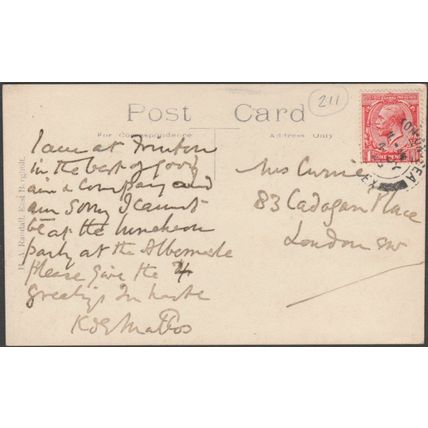 211
Post Card
For Correspondence
Address Only
I am at Frinton
in the best of good
air & company and
am sorry I cannot
be at the luncheon
party at the Albemarle
Please give the 4
greetings In haste
Mrs Currie
83 Cadogan Place
London SW
Randall, East Bergholt.